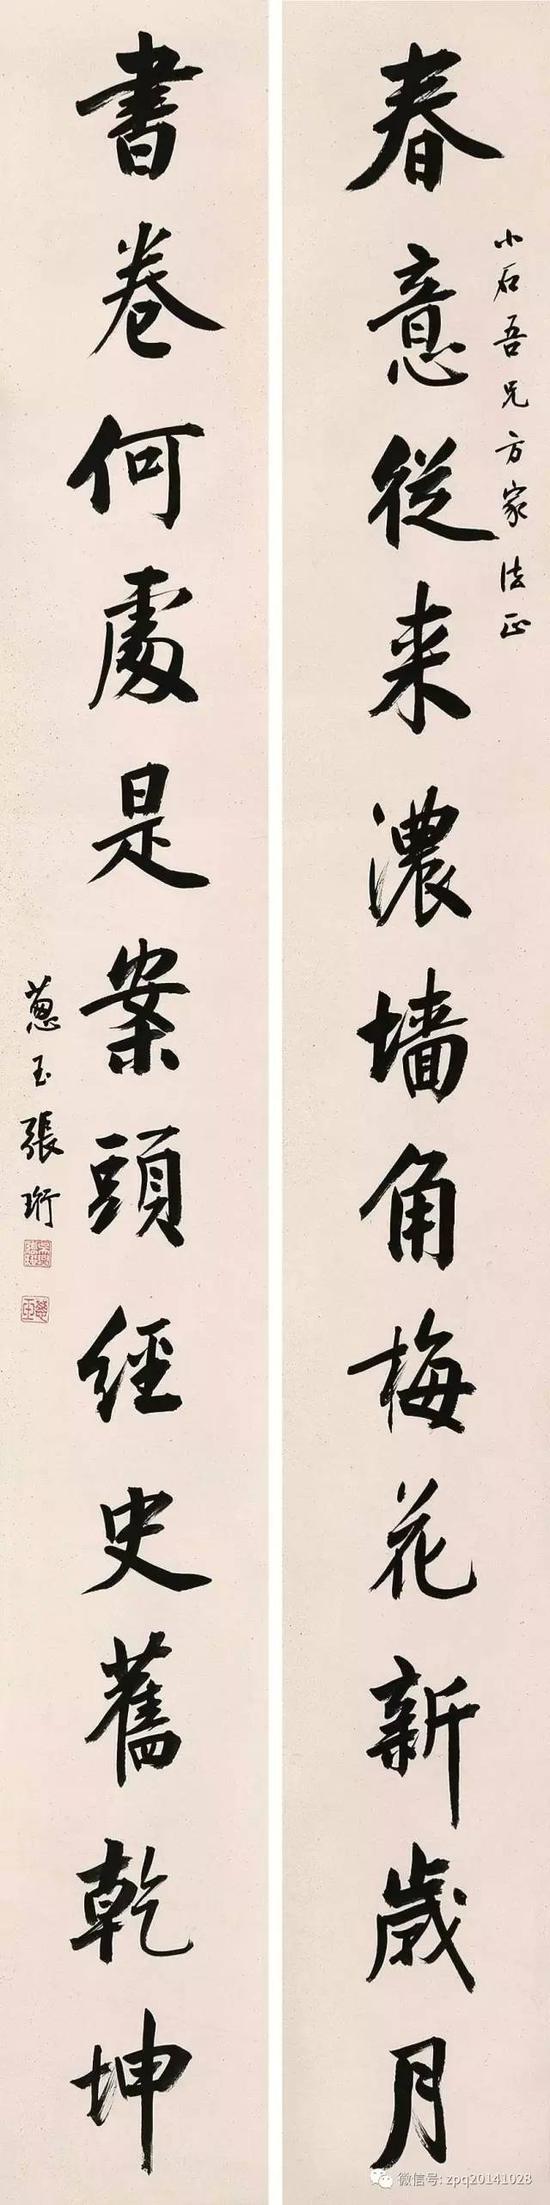 小石吾兄方家法正
春意從来濃墙角梅花新歲月
書卷何處是案頭經史舊乾坤
蔥玉張珩
微信号: zpq20141028